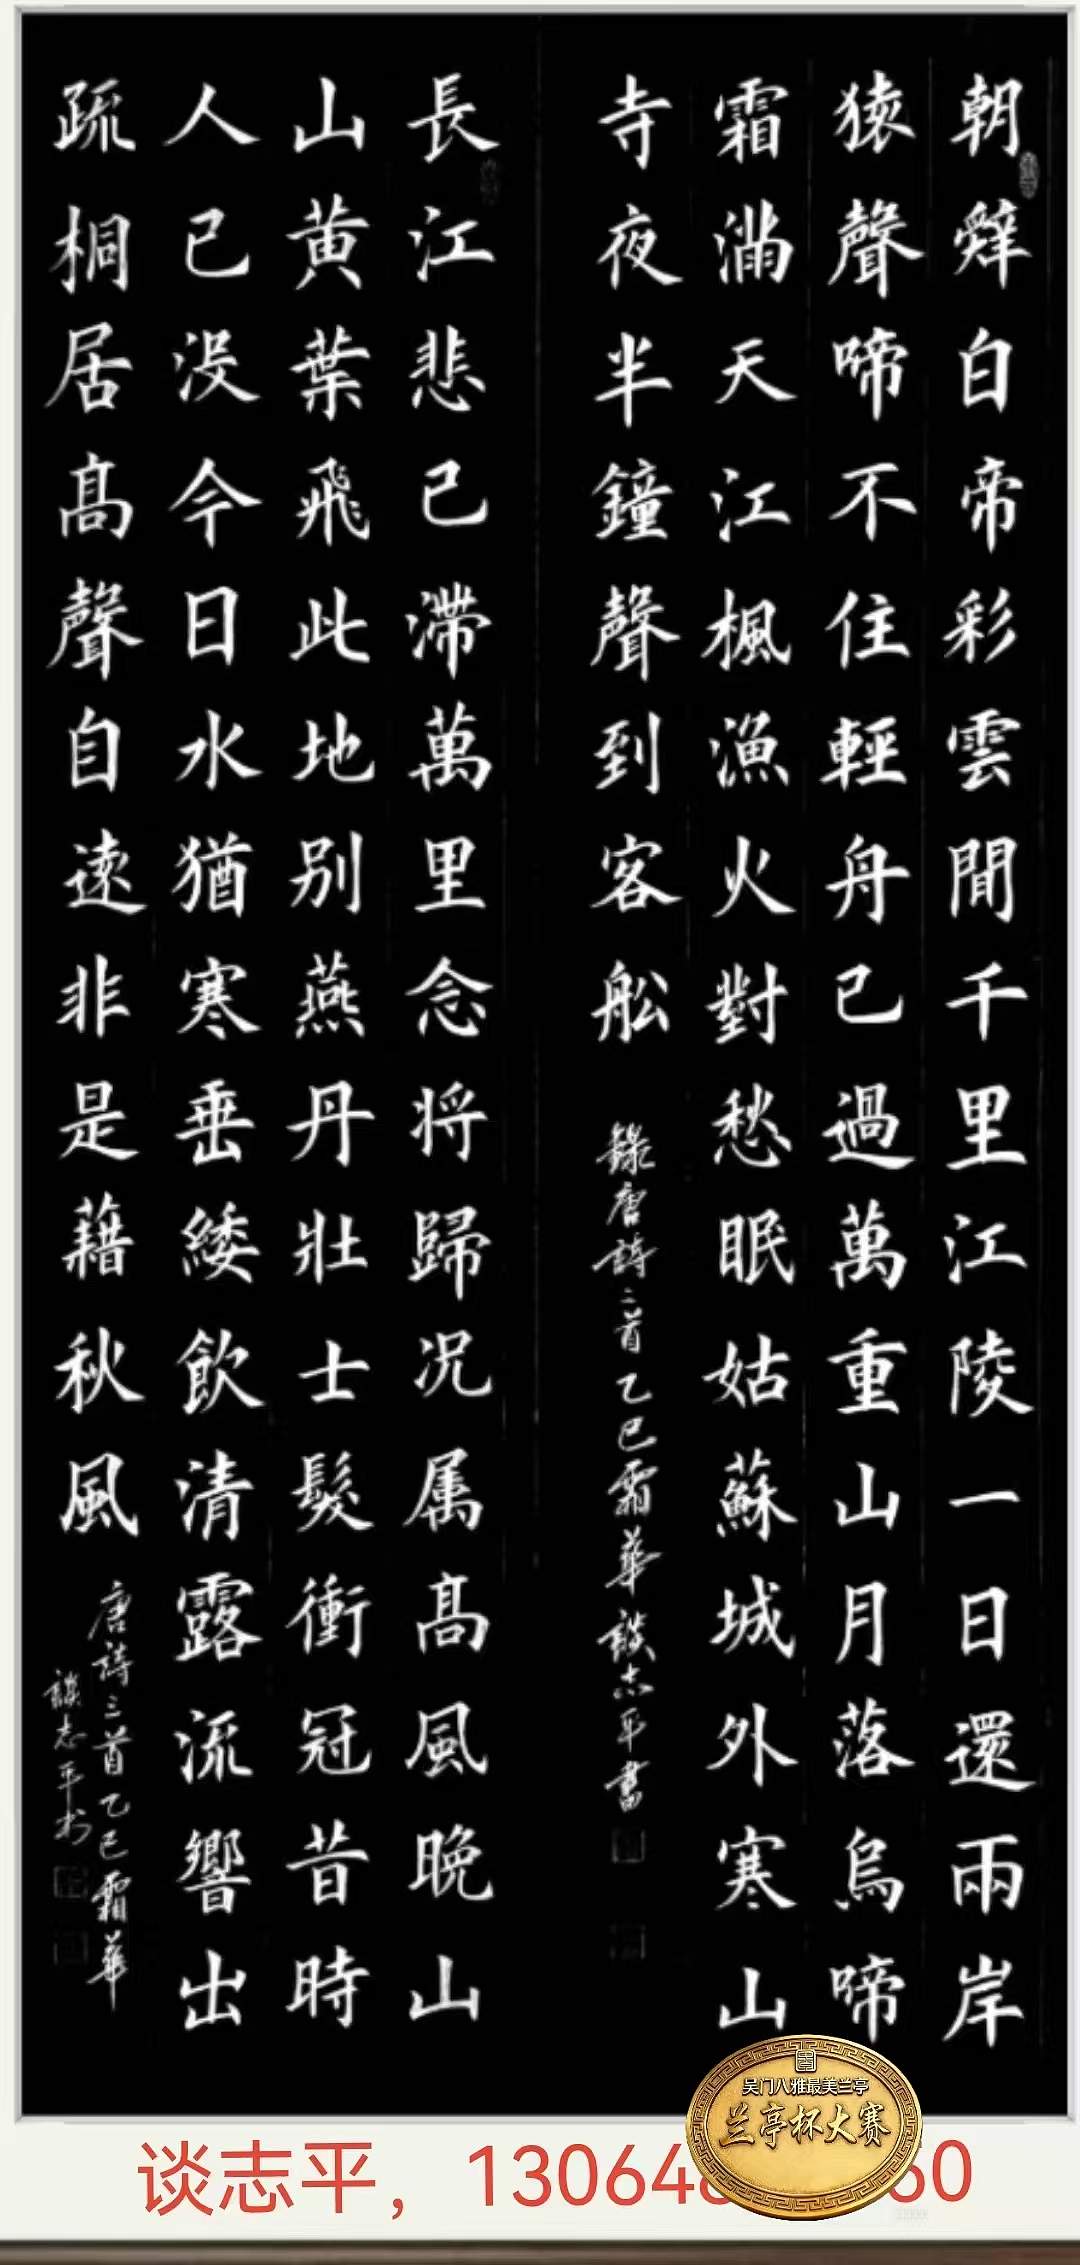 朝辤白帝彩雲間千里江陵一日還兩岸
猿聲啼不住輕舟已過萬重山月落烏啼
霜滿天江楓漁火對愁眠姑蘇城外寒山
寺夜半鐘聲到客船
錄唐詩二首乙巳霜華談志平書
長江悲已滯萬里念将歸況属高風晚山
山黃葉飛此地别燕丹壯士髮衝冠昔時
人已没今日水猶寒垂緌飲清露流響出
疏桐居高聲自遠非是藉秋風
唐詩三首乙巳霜華
談志平书
吴门八雅最美兰亭
兰亭杯大赛
谈志平，13064 60